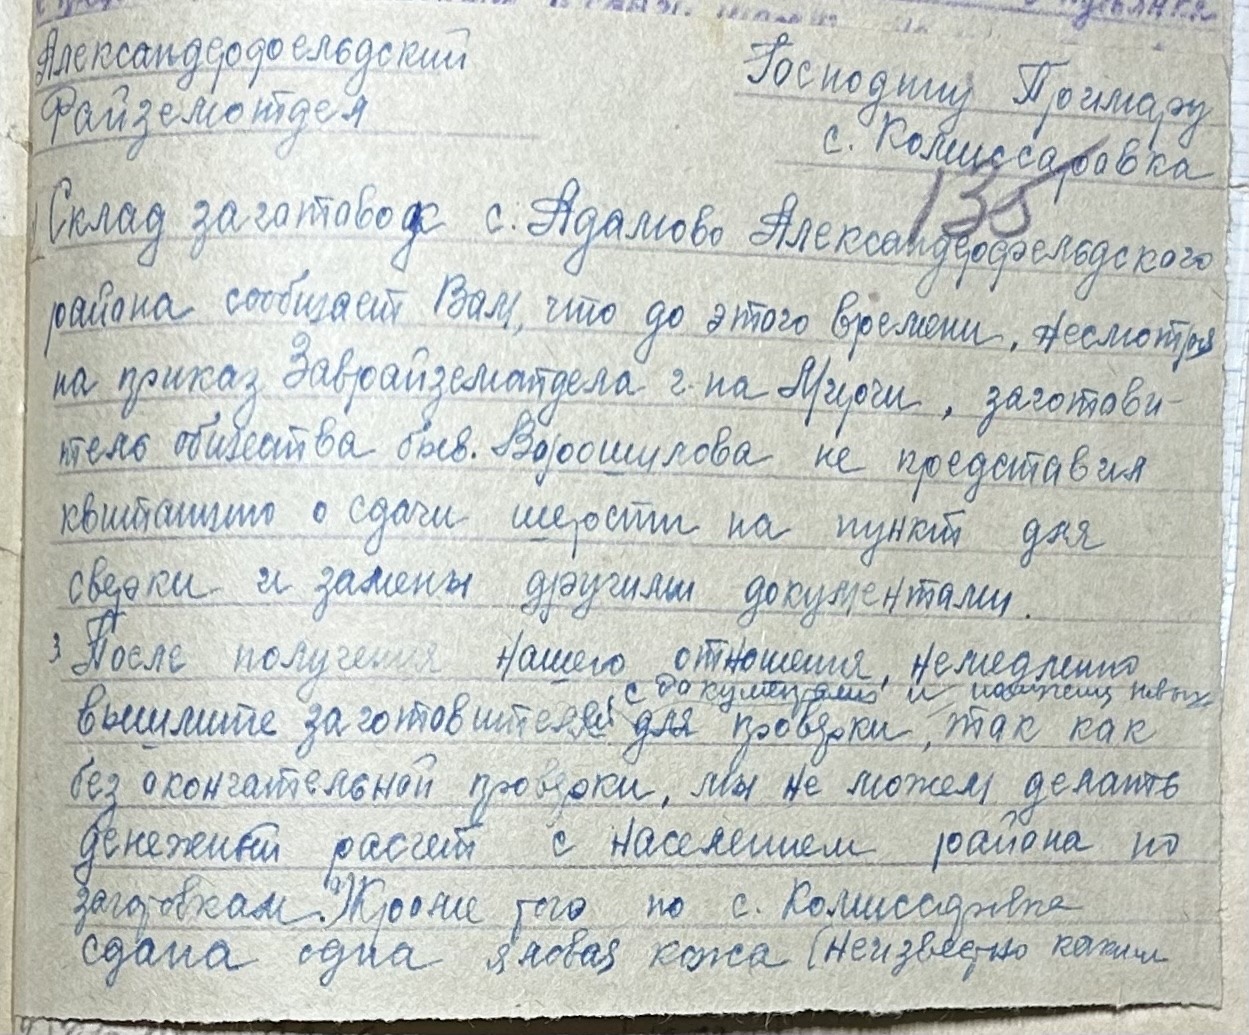 Александерфельдский
Райземотдел
Господину Примарю
с. Комиссаровка
135
Склад заготовок с. Адамово Александерфельдского
района сообщает Вам, что до этого времени, несмотря
на приказ Заврайземотдела г-на, заготови-
тель общества быв. Ворошилова не представил
квитанцию о сдачи шерсти на пункт для
сверки и замены другими документами.
3 После получения нашего отношения, немедленно
с документами и
вышлите заготовителей для проверки, так как
без окончательной проверки, мы не можем делать
денежный расчет с населением района по
заготовкам. Кроме того по с. Комиссаровке
сдана одна яловая кожа (неизвестно каким